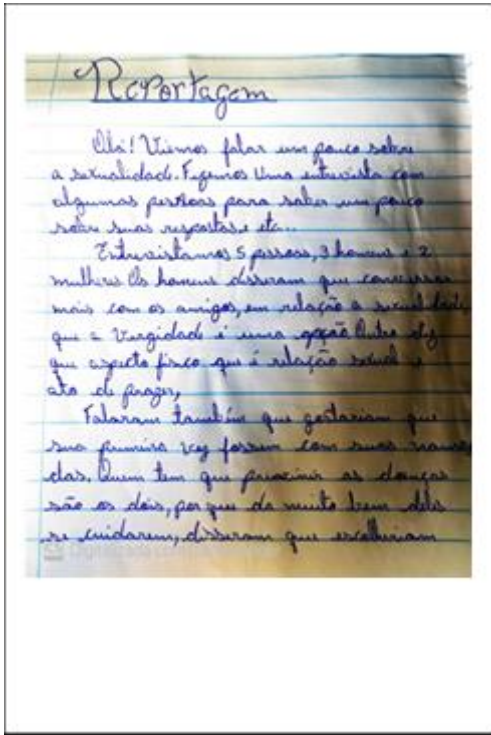 Reportagem
Olá! Viemos falar um pouco sobre
a sexualidade. Fizemos Uma entrevista com
algumas pessoas para saber um pouco
sobre suas respostas e etc...
Entrevistamos 5 pessoas, 3 homens e 2
mulheres Os homens disseram que conversam
mais com os amigos, em relação a sexualidade,
que a Vergidade é uma opção Outro diz
que aspecto fisco que é relação sexual e
ato de prazer,
Falaram também que gostariam que
sua primeira vez fossem com suas namora
das. Quem tem que previnir as doenças
são os dois, porque da muito bem deles
se cuidarem, disseram que escolheriam